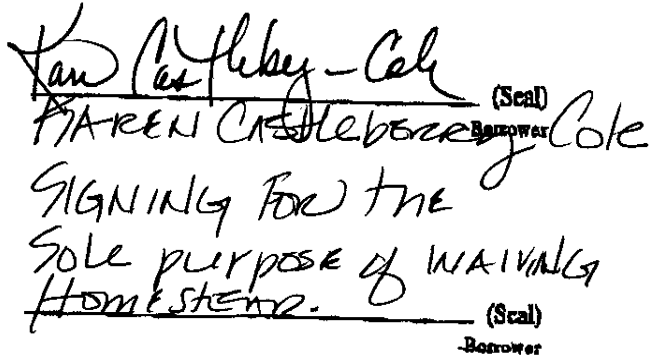 Karen Castleberry-Cole
(Seal)
KAREN Castleberry Cole
Borrower
SIGNING FOR the
Sole purpose of WAIVING
HOMESTEAD.
(Seal)
Borrower